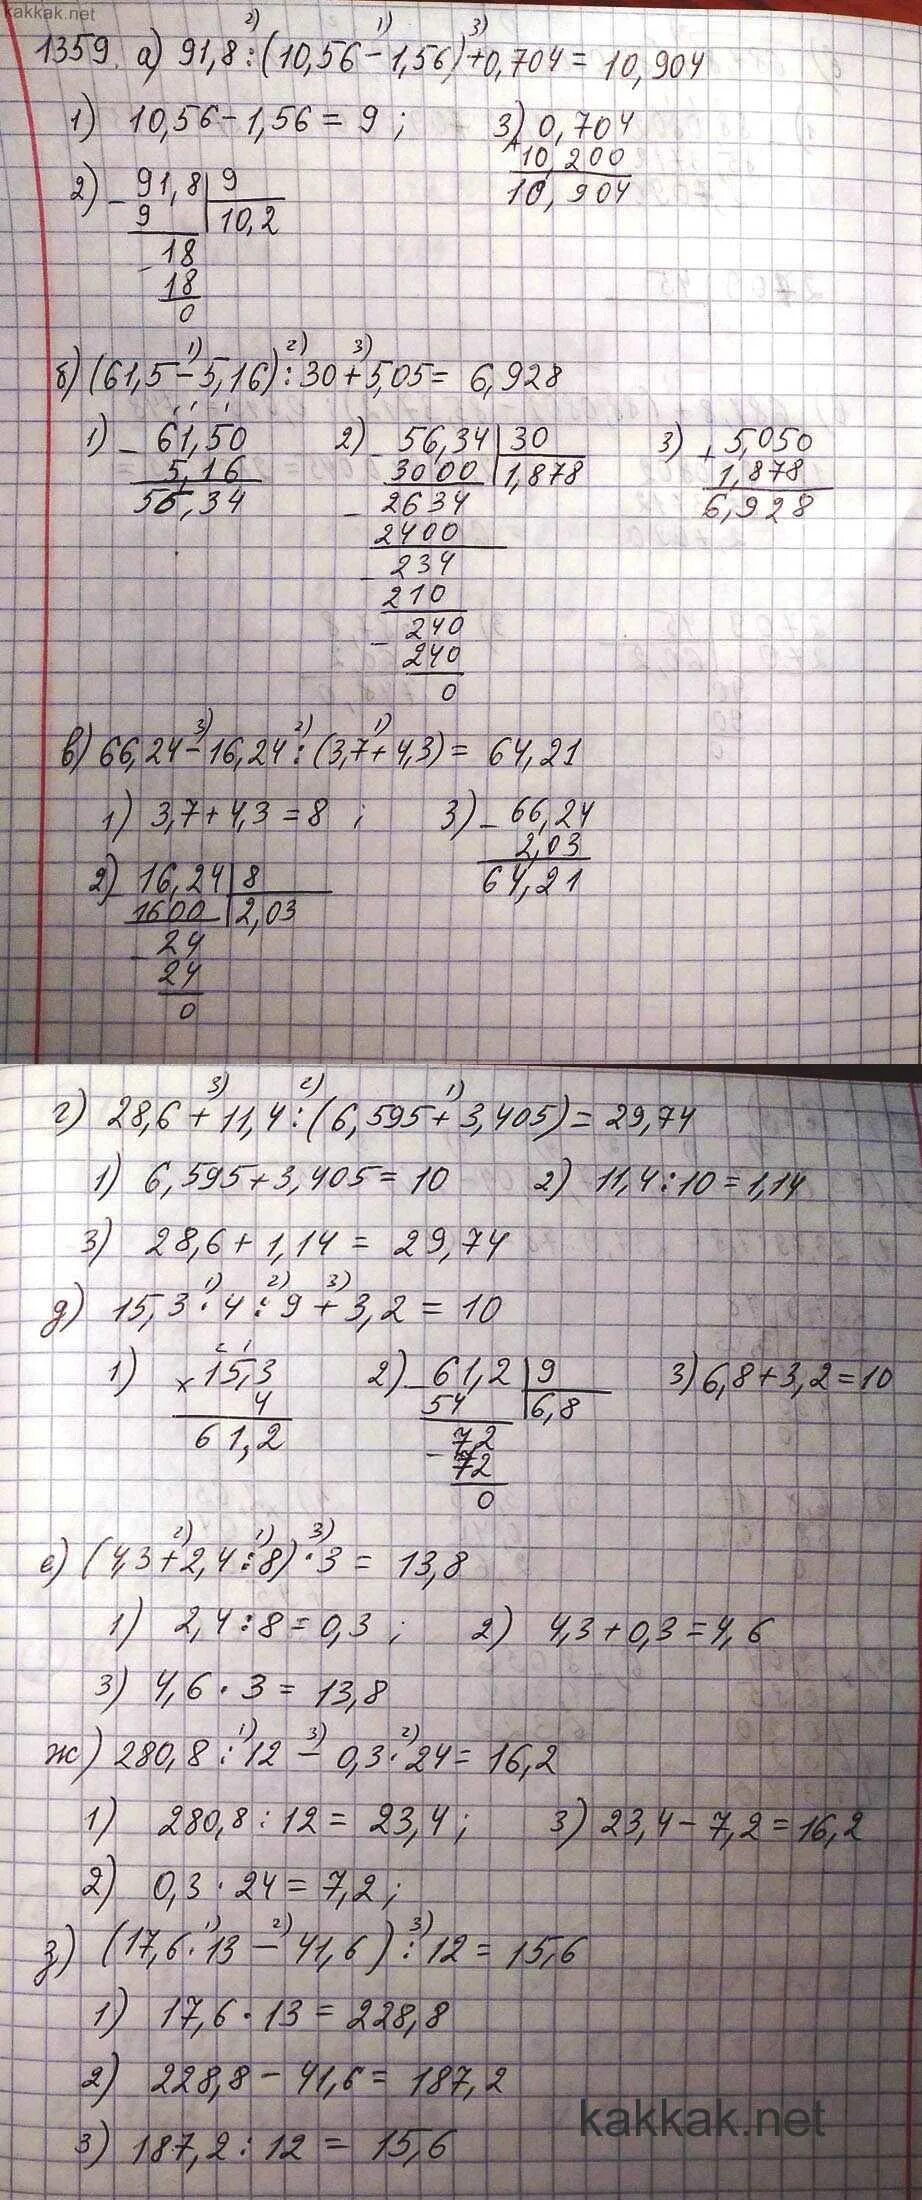 kakkak.net
2) 1) 3)
1359. а) 91,8 : (10,56 - 1,56) + 0,704 = 10,904
1) 10,56 - 1,56 = 9 ; 3) 0,704
+ 10,200
10,904
2) - 91,8 | 9
9 | 10,2
- 18
18
0
1) 2) 3)
б) (61,5 - 5,16) : 30 + 5,05 = 6,928
1) - 61,50 2) - 56,34 | 30 3) + 5,050
5,16 3000 | 1,878 1,878
56,34 - 2634 6,928
2400
- 234
210
- 240
240
0
3) 2) 1)
в) 66,24 - 16,24 : (3,7 + 4,3) = 64,21
1) 3,7 + 4,3 = 8 ; 3) - 66,24
2,03
64,21
2) - 16,24 | 8
1600 | 2,03
- 24
24
0
3) 2) 1)
г) 28,6 + 11,4 : (6,595 + 3,405) = 29,74
1) 6,595 + 3,405 = 10 2) 11,4 : 10 = 1,14
3) 28,6 + 1,14 = 29,74
1) 2) 3)
д) 15,3 · 4 : 9 + 3,2 = 10
2 1
1) × 15,3 2) - 61,2 | 9 3) 6,8 + 3,2 = 10
4 54 | 6,8
61,2 - 7,2
72
0
2) 1) 3)
е) (4,3 + 2,4 : 8) · 3 = 13,8
1) 2,4 : 8 = 0,3 ; 2) 4,3 + 0,3 = 4,6
3) 4,6 · 3 = 13,8
1) 3) 2)
ж) 280,8 : 12 - 0,3 · 24 = 16,2
1) 280,8 : 12 = 23,4 ; 3) 23,4 - 7,2 = 16,2
2) 0,3 · 24 = 7,2 ;
1) 2) 3)
з) (17,6 · 13 - 41,6) : 12 = 15,6
1) 17,6 · 13 = 228,8
2) 228,8 - 41,6 = 187,2
3) 187,2 : 12 = 15,6
kakkak.net